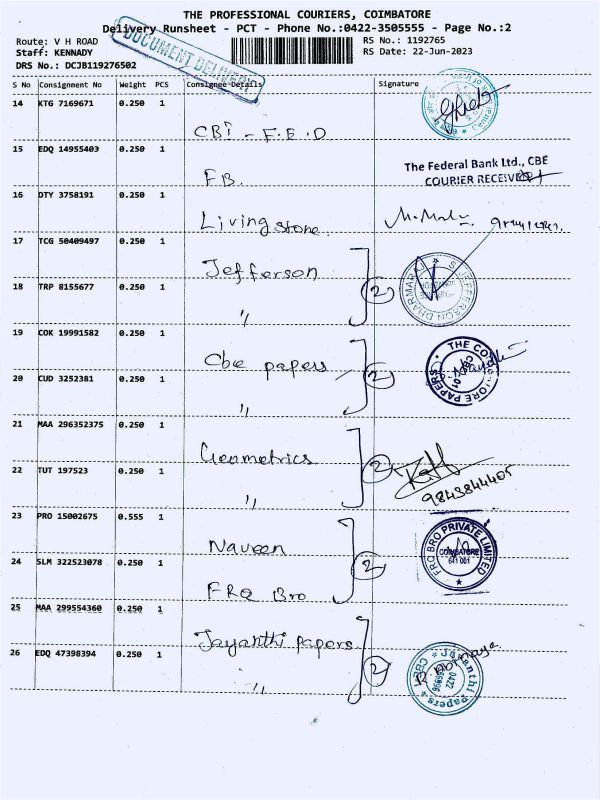 THE PROFESSIONAL COURIERS, COIMBATORE
Delivery Runsheet - PCT - Phone No.:0422-3505555 - Page No.:2
Route: V H ROAD
Staff: KENNADY
DRS No.: DCJB119276502
RS No.: 1192765
RS Date: 22-Jun-2023
DOCUMENT DELIVERY
S No Consignment No Weight PCS Consignee Details Signature
14 KTG 7169671 0.250 1 CBI - F.E.D
15 EDQ 14955403 0.250 1 F.B.
The Federal Bank Ltd., CBE
COURIER RECEIVED
16 DTY 3758191 0.250 1 Livingstone
17 TCG 50409497 0.250 1 Jefferson
S. JEFFERSON DHARMARAJ
18 TRP 8155677 0.250 1 " 2
19 COK 19991582 0.250 1 Cbe papers
THE COIMBATORE PAPERS
20 CUD 3252381 0.250 1 " 2
21 MAA 296352375 0.250 1 Geometrics
22 TUT 197523 0.250 1 " 2
9843844405
23 PRO 15002675 0.555 1 Naveen
FRQ BRO PRIVATE LIMITED
COIMBATORE
641 001
24 SLM 322523078 0.250 1 FRQ Bro 2
25 MAA 299554360 0.250 1 Jayanthi papers
26 EDQ 47398394 0.250 1 " 2
Jayanthi Papers
CBE
0422